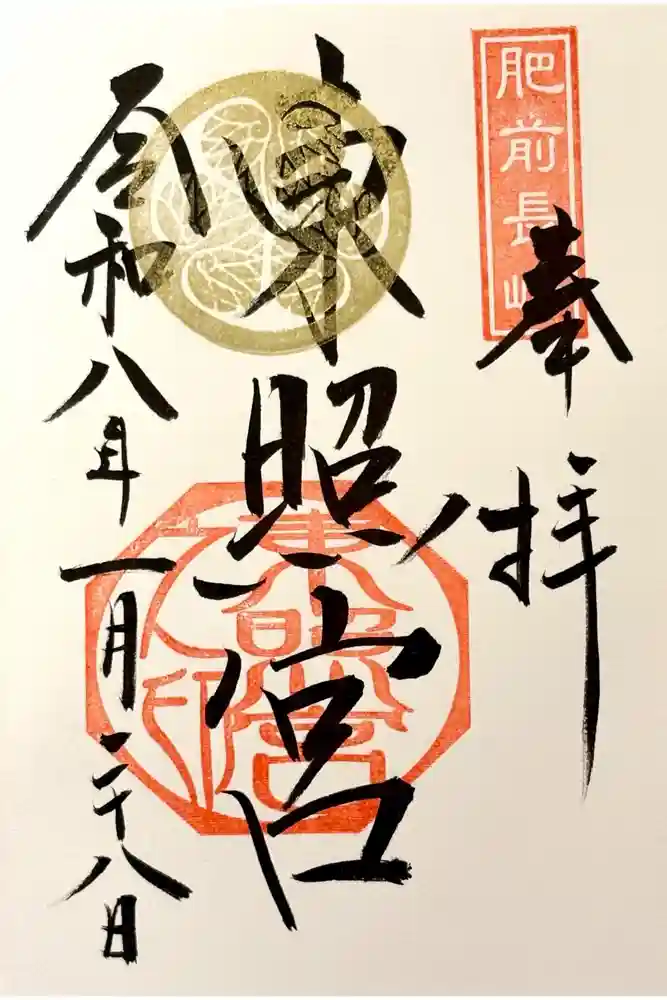 肥前長崎
奉拝
東照宮
東照宮
令和八年一月二十八日